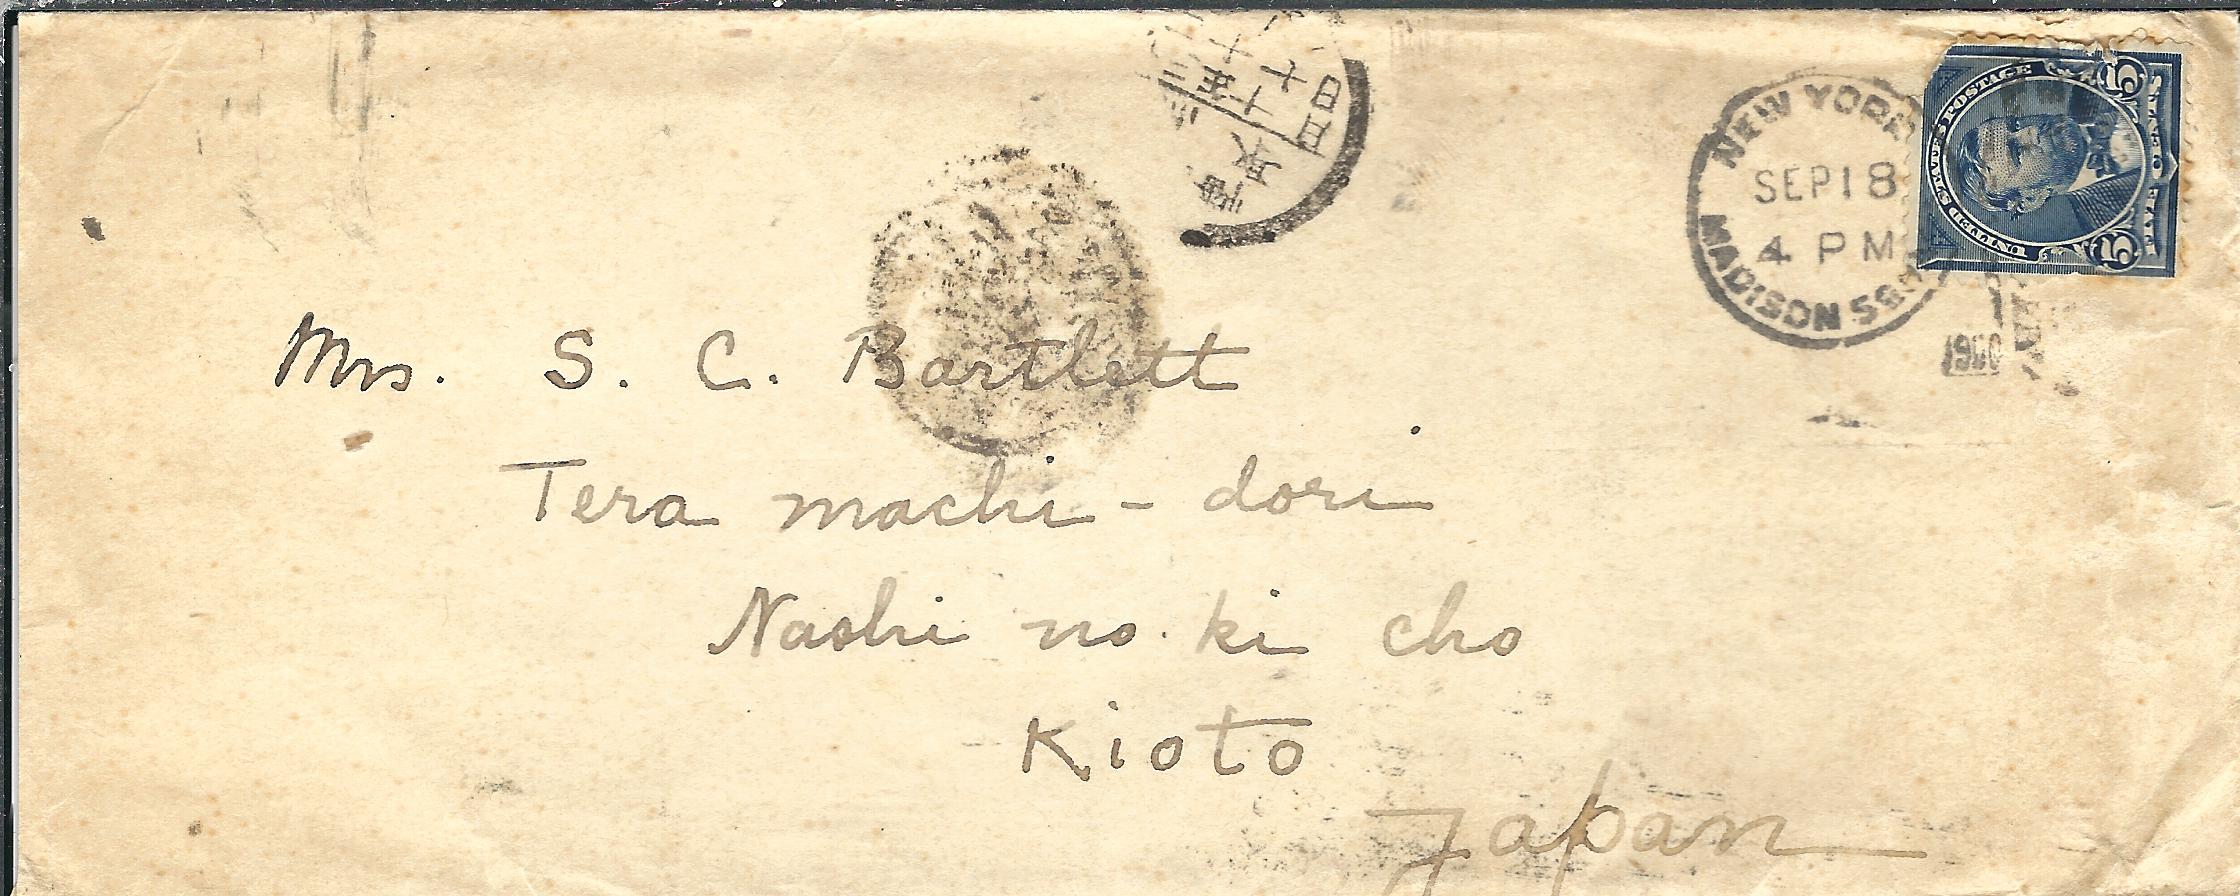 NEW YORK
SEP 18
4 PM
MADISON SQ.
1900
UNITED STATES POSTAGE
5 5
Mrs. S. C. Bartlett
Tera machi - dori
Nashi no. ki cho
Kioto
Japan